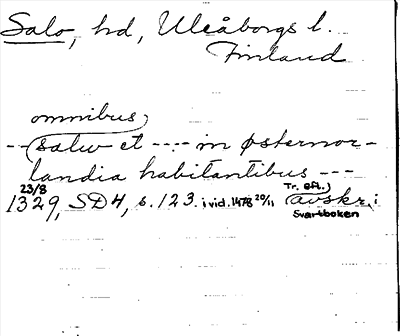 Salo, hd, Uleåborgs l.
Finland
omnibus,
-- salw et ---- in østernor-
landia habitantibus ---
23/8
1329, SD4, s. 123. i vid. 1478 20/11 Tr. eft. avskr. i
Svartboken